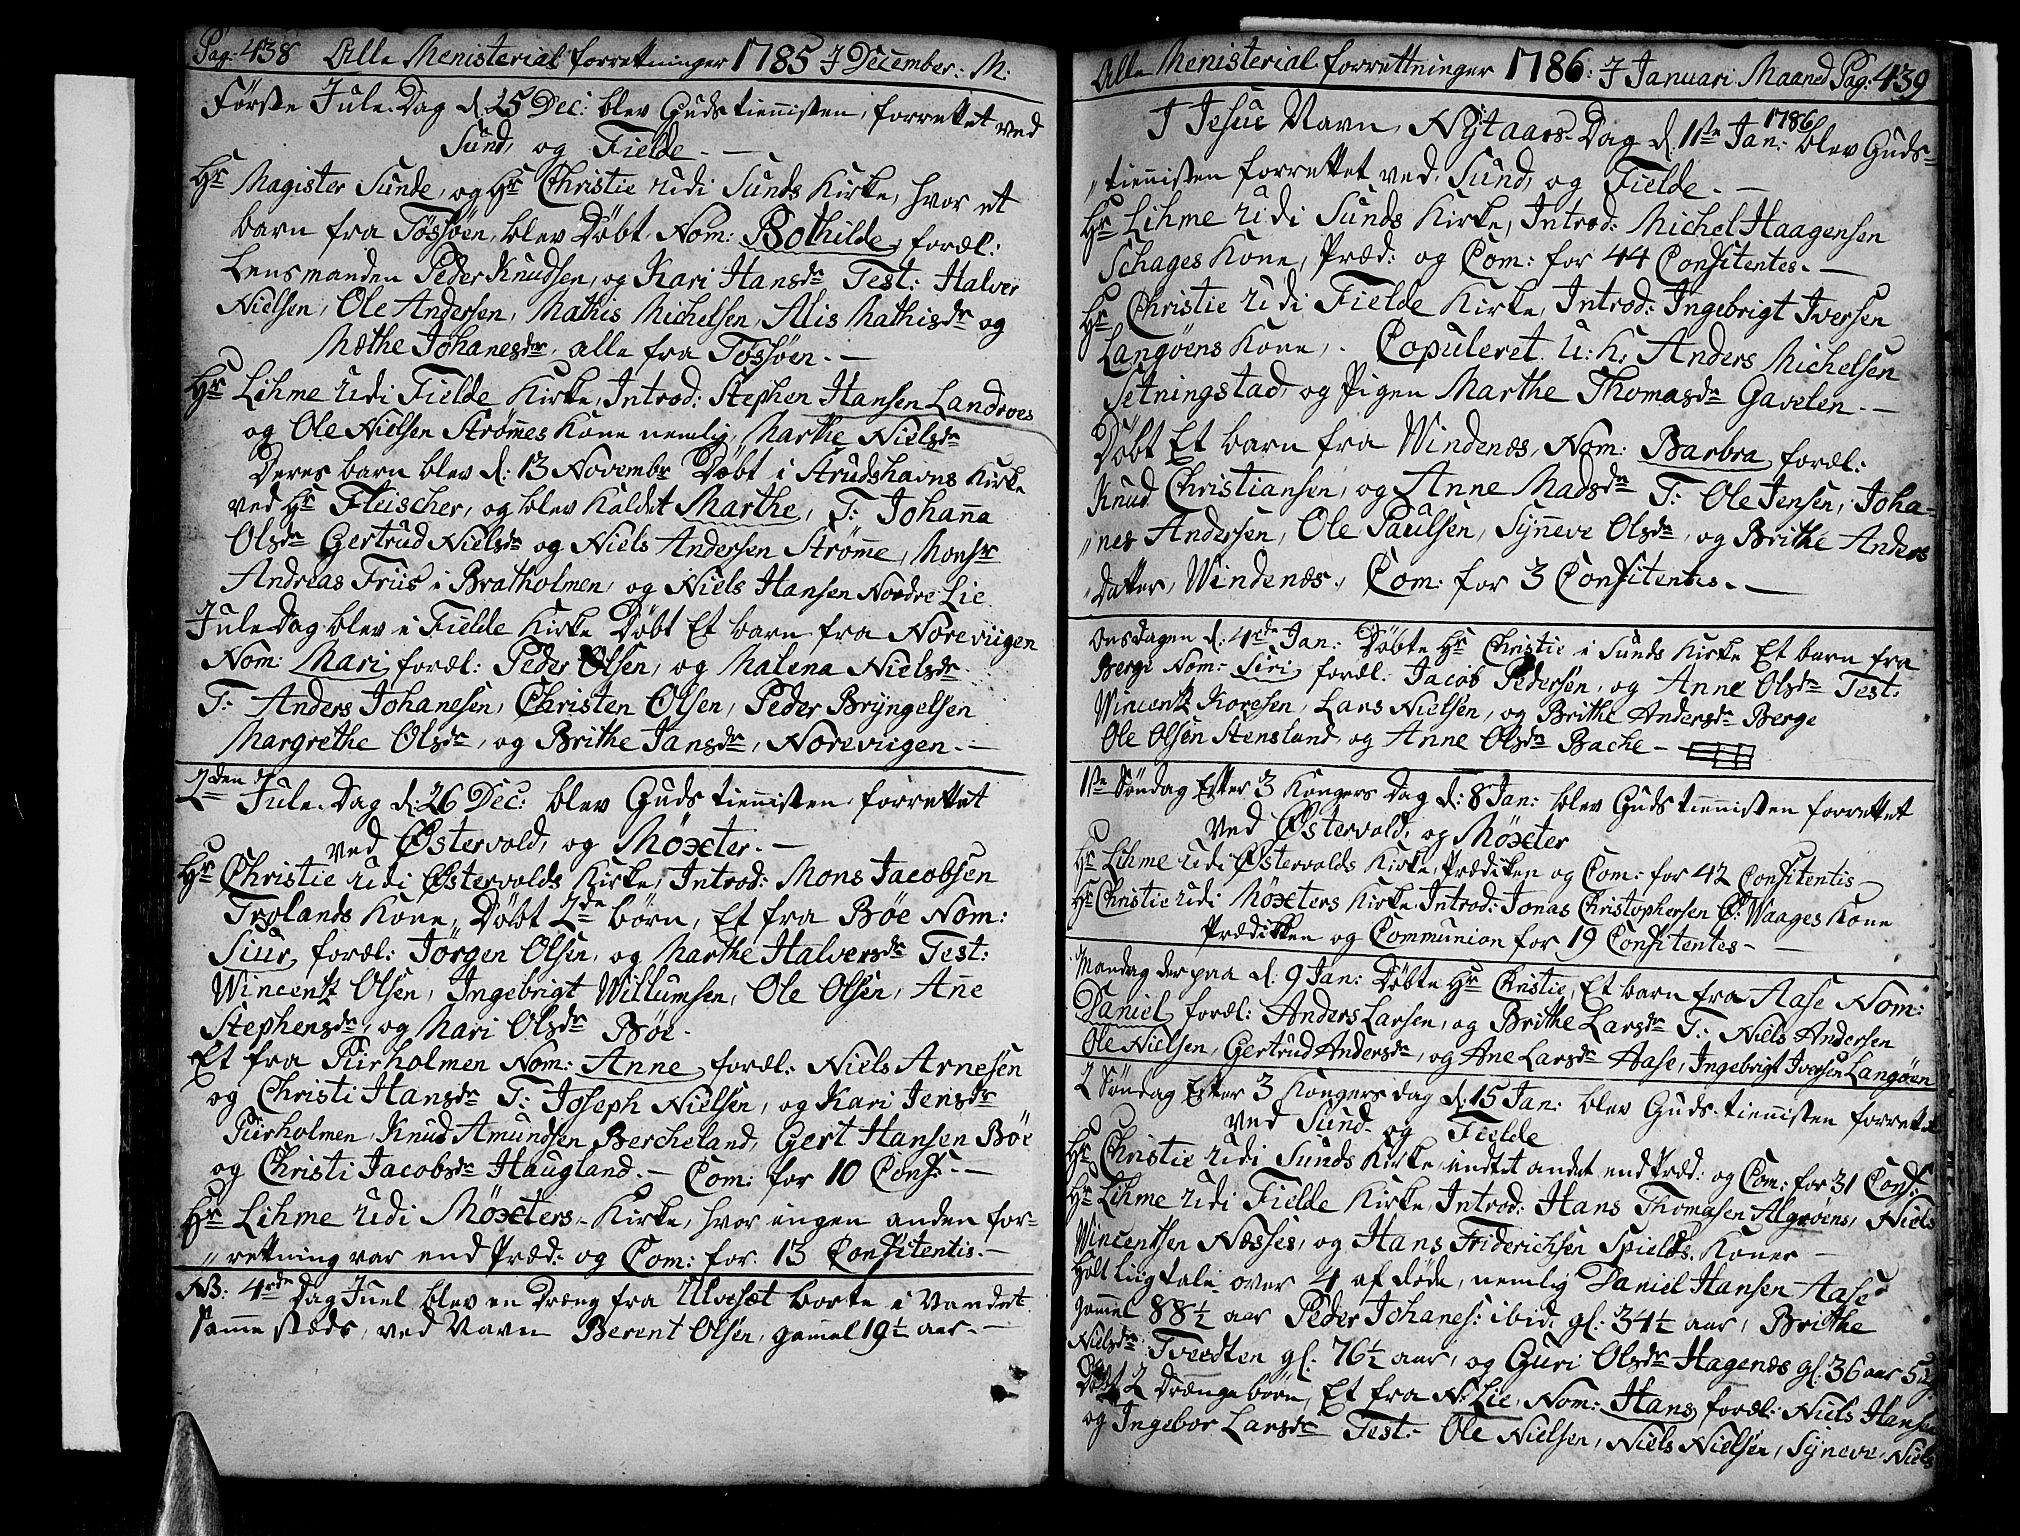 Pag: 438 Alle Menisterial forretninger 1785 J December: M:
Første Jule Dag d. 25 Dec: blev Guds tienisten, forrettet ved
Sund, og Fielde. —
Hr Magister Sunde, og Hr Christie udi Sunds Kirke, hvor et
barn fra Tøssøen, blev Døbt, Nom: Bothilde, foræl:
Lensmanden Peder Knudsen, og Kari Hansdr Test: Halver
Nielsen, Ole Andersen, Mathis Michelsen, Alis Mathisdr og
Mæthe Johanesdr, alle fra Tøssøen. —
Hr Lihme udi Fielde Kirke, Introd: Stephen Hansen Landroes
og Ole Nielsen Strømes Kone nemlig, Marthe Nielsdr
Deres barn blev d: 13 Novembr Døbt i Strudshavns Kirke
ved Hr Fleischer, og blev kaldet Marthe, T: Johana
Olsdr Gertrud Nielsdr og Niels Andersen Strømme, Monsr
Andreas Friis i Bratholmen, og Niels Hansen Nordre Lie
Jule Dag blev i Fielde Kirke Døbt Et barn fra Noreviigen
Nom: Mari, foræl: Peder Olsen, og Malena Nielsdr.
T: Anders Johanesen, Christen Olsen, Peder Bryngelsen
Margrethe Olsdr, og Brithe Jansdr, Noreviigen. —
2den Jule Dag d: 26 Dec: blev Guds tienisten, forrettet
ved Østervold, og Møxter. —
Hr Christie udi Østervolds Kirke, Introd: Mons Jacobsen
Trolands Kone, Døbt 2de børn, Et fra Bøe Nom:
Siur, foræl: Jørgen Olsen, og Marthe Halversdr Test:
Wincentz Olsen, Ingebrigt Willumsen, Ole Olsen, Ane
Stephensdr, og Mari Olsdr Bøe.
Et fra Piirholmen Nom: Anne, foræl: Niels Arnesen
og Christi Hansdr T: Joseph Nielsen, og Kari Jensdr
Piirholmen, Knud Amundsen Bercheland, Gert Hansen Bøe
og Christi Jacobsdr Haugland. — Com: for 10 Conf: —
Hr Lihme udi Møxters Kirke, hvor ingen anden for-
retning var end Præd: og Com: for 13 Confitentis. —
NB: 4rde Dag Juel blev en Dræng fra Ulvesæt borte i Vandet
samme steds, ved Navn Berent Olsen, gamel 19½ aar. —
Alle Menisterial forrettninger 1786: J Januari Maaned Pag: 439
J Jesue Navn, Nytaars Dag d. 1ste Jan: 1786 blev Guds-
tienisten forrettet ved, Sund, og Fielde. —
Hr Lihme udi Sunds Kirke, Introd: Michel Haagensen
Schages Kone, Præd: og Com: for 44 Confitentes. —
Hr Christie udi Fielde Kirke, Introd: Ingebrigt Iversen
Langøens Kone, Copuleret U: K: Anders Michelsen
Setningstad, og Pigen Marthe Thomasdr Gavelen. —
Døbt Et barn fra Windenæs, Nom: Barbra, foræl:
Knud Christiansen, og Anne Madsdr T: Ole Jensen, Joha-
nes Andersen, Ole Paulsen, Syneve Olsdr, og Brithe Anders
Datter, Windenæs, Com: for 3 Confitentis. —
Onsdagen d: 4rde Jan: Døbte Hr Christie i Sunds Kirke Et barn fra
Berge Nom: Siri, foræl: Jacob Pedersen, og Anne Olsdr Test:
Wincentz Koresen, Lars Nielsen, og Brithe Andersdr Berge
Ole Olsen Stensland, og Anne Olsdr Bache —
1ste Søndag Efter 3 Kongers Dag d: 8 Jan: blev Guds tienisten forrettet
Ved Østervold, og Møxter
Hr Lihme udi Østervolds Kirke, Prædiken og Com: for 42 Confitentis
Hr Christie udi Møxters Kirke, Introd: Jonas Christophersen Ø: Waages Kone
Prædikken og Communion for 19 Confitentes —
Mandag der paa d. 9 Jan: Døbte Hr Christie, Et barn fra Aase Nom:
Daniel, foræl: Anders Larsen, og Brithe Larsdr T: Niels Andersen
Ole Nielsen, Gertrud Andersdr, og Ane Larsdr Aase, Ingebrigt Iversen Langøen
2 Søndag Efter 3 Kongers dag d. 15 Jan: blev Guds tienisten forrettet
ved Sund og Fielde
Hr Christie udi Sunds Kirke, indtet andet end Præd: og Com: for 31 Conf:
Hr Lihme udi Fielde Kirke, Introd: Hans Thomasen Algrøens, Niels
Wincentsen Næsses, og Hans Friderichsen Spields Koner —
Holt liig tale over 4 af døde, nemlig Daniel Hansen Aase
gamel 88½ aar Peder Johanes: ibid. gl: 34½ aar, Brithe
Nielsdr Tveedten gl: 76½ aar, og Guri Olsdr Hagenæs gl: 36 aar
Døbt 2 Drænge børn, Et fra N: Lie, Nom: Hans, foræl: Niels Hansen
og Ingebor Larsdr Test: Ole Nielsen, Niels Nielsen, Syneve Niels